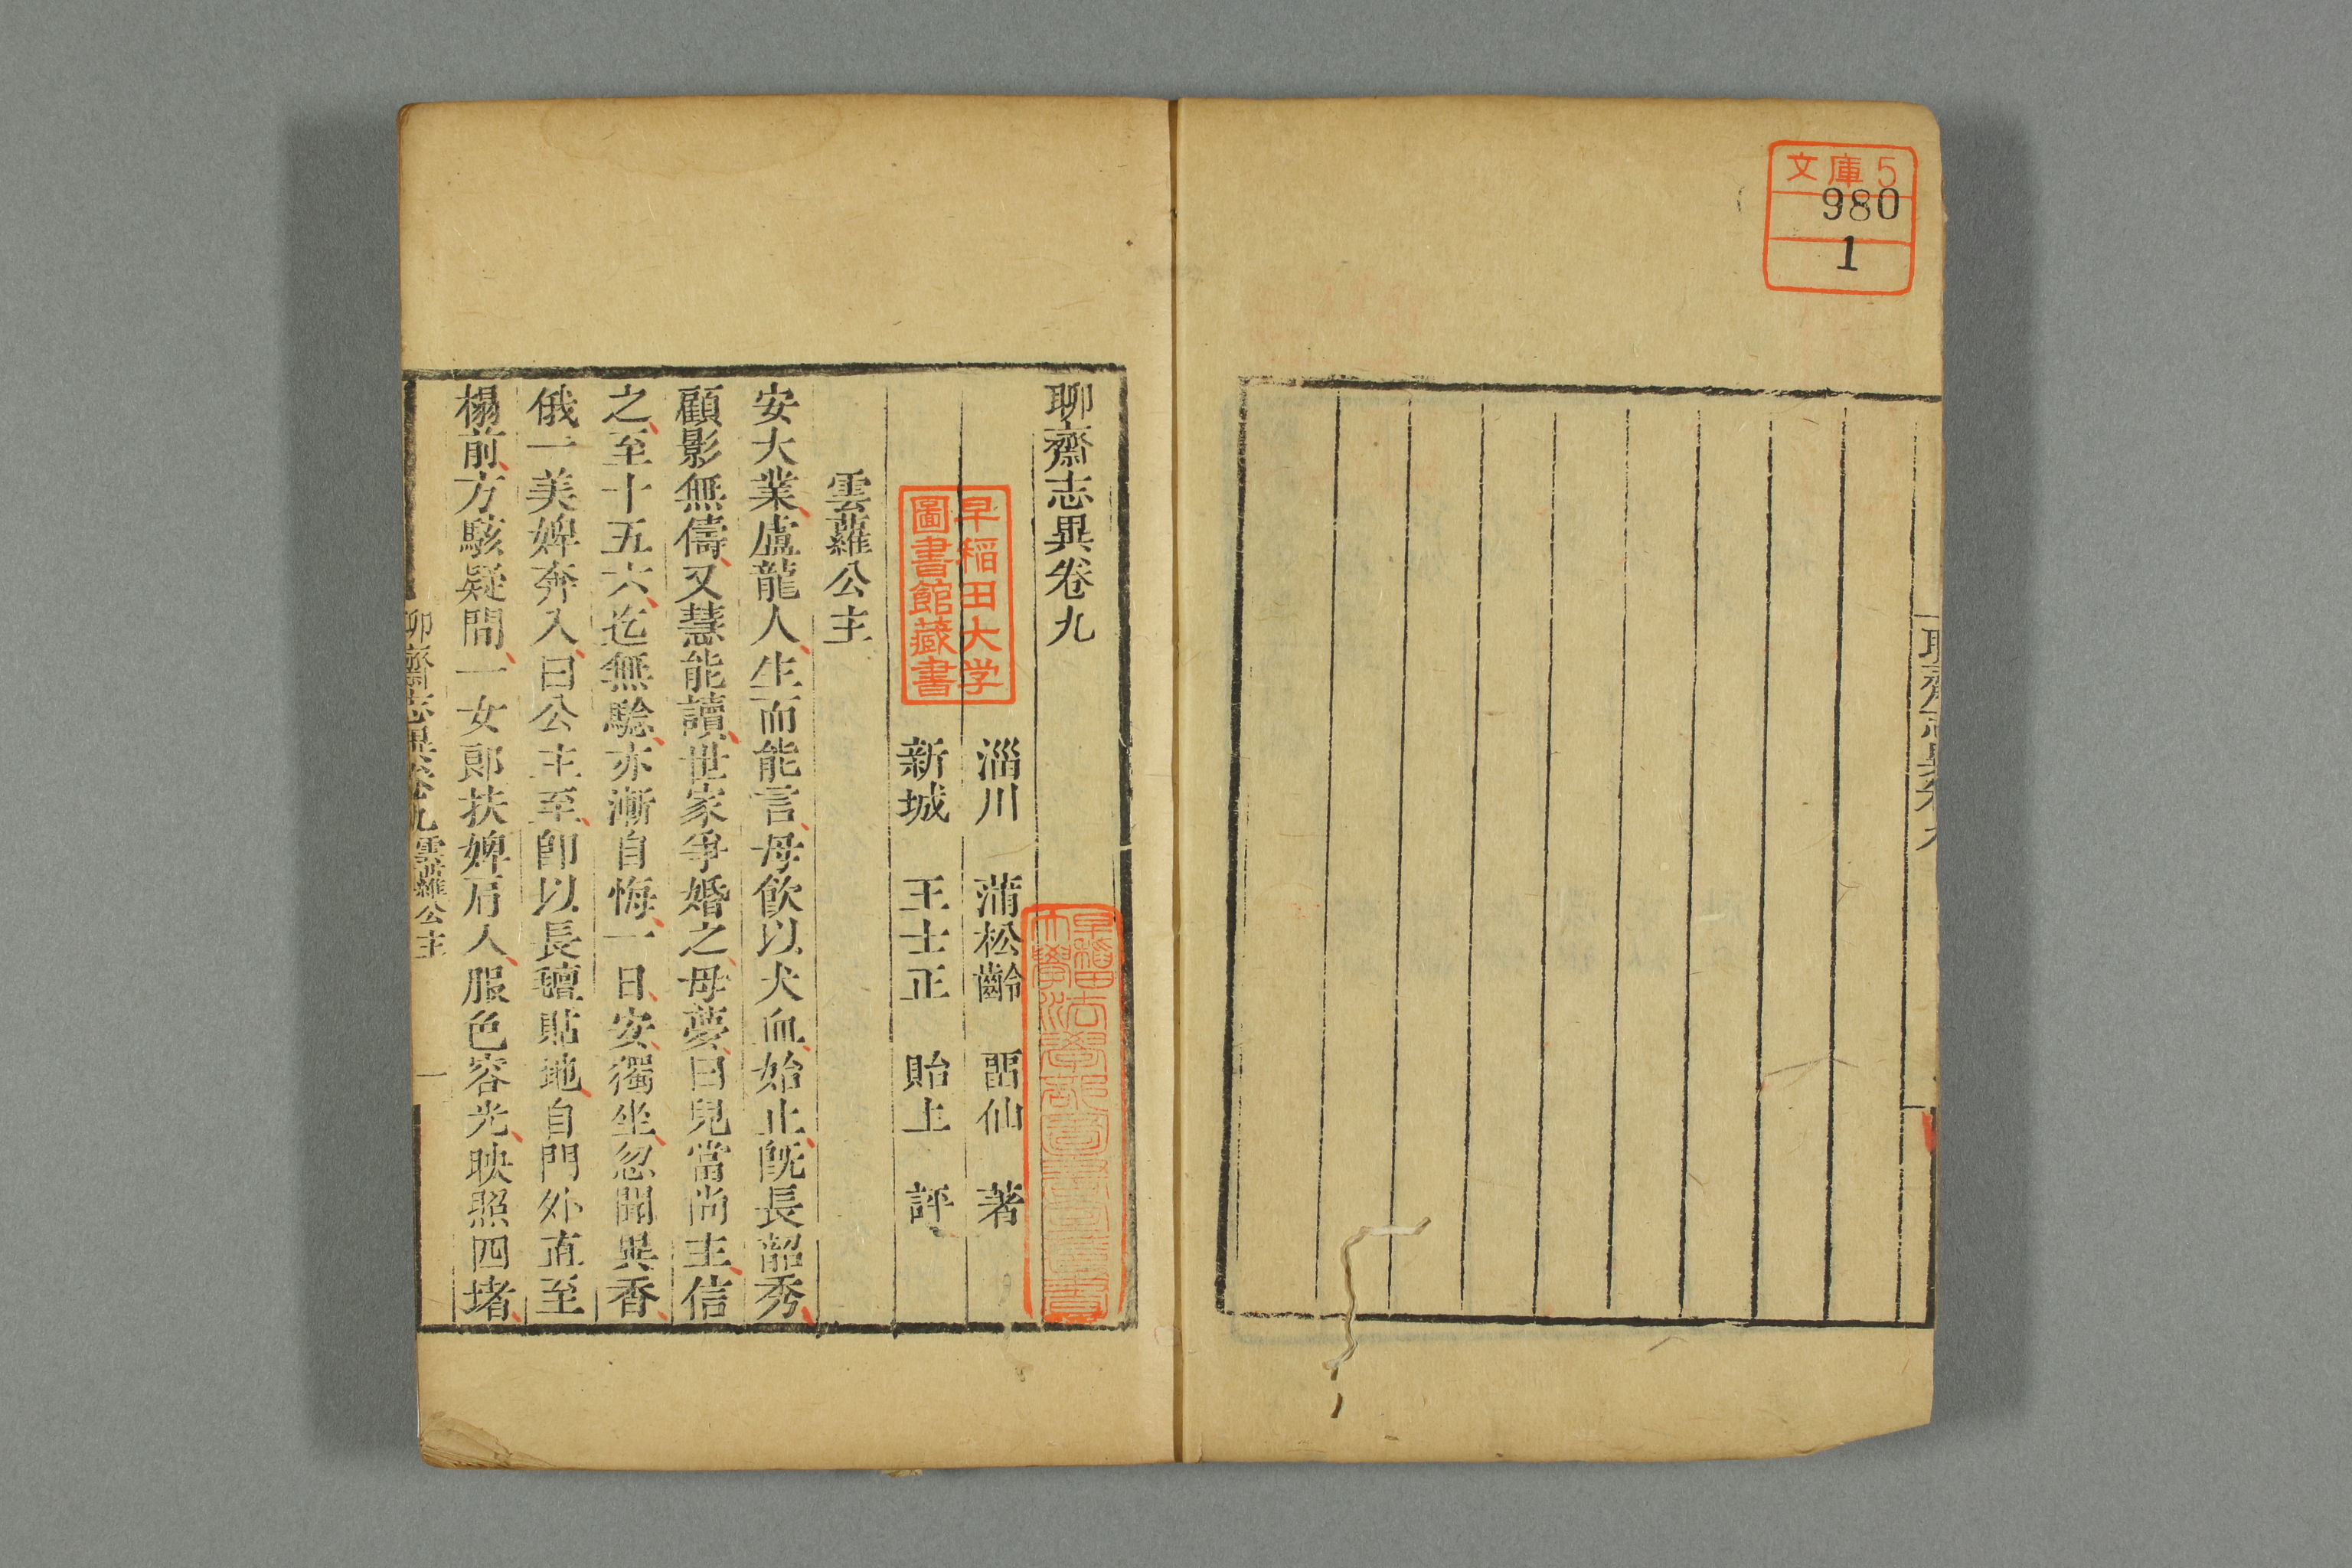 文庫5
980
1
聊齋志異卷九
淄川 蒲松齡 畱仙 著
新城 王士正 貽上 評
早稲田大学
圖書館藏書
雲蘿公主
安大業盧龍人生而能言母飲以犬血始止旣長韶秀
顧影無儔又慧能讀世家爭婚之母夢曰兒當尚主信
之至十五六迄無驗亦漸自悔一日安獨坐忽聞異香
俄一美婢奔入曰公主至卽以長氊貼地自門外直至
榻前方駭疑間一女郎扶婢肩入服色容光映照四堵
聊齋志異卷九 雲蘿公主 一